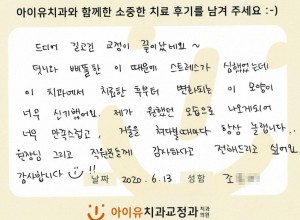 아이유치과와 함께한 소중한 치료 후기를 남겨 주세요 :-)
드디어 길고긴 교정이 끝이났네요 ~
덧니와 삐뚤한 이 때문에 스트레스가 심했었는데
이 치과에서 치료한 후부터 변화되는 이 모양이
너무 신기했어요. 제가 원했던 모습으로 나오게되어
너무 만족스럽고, 거울을 쳐다볼때마다 항상 놀랍니다..
원장님 그리고 직원분들께 감사하다고 전해드리고 싶어요.
감사합니다 !!
날짜 2020. 6. 13 성함 조
아이유치과교정과 치과의원